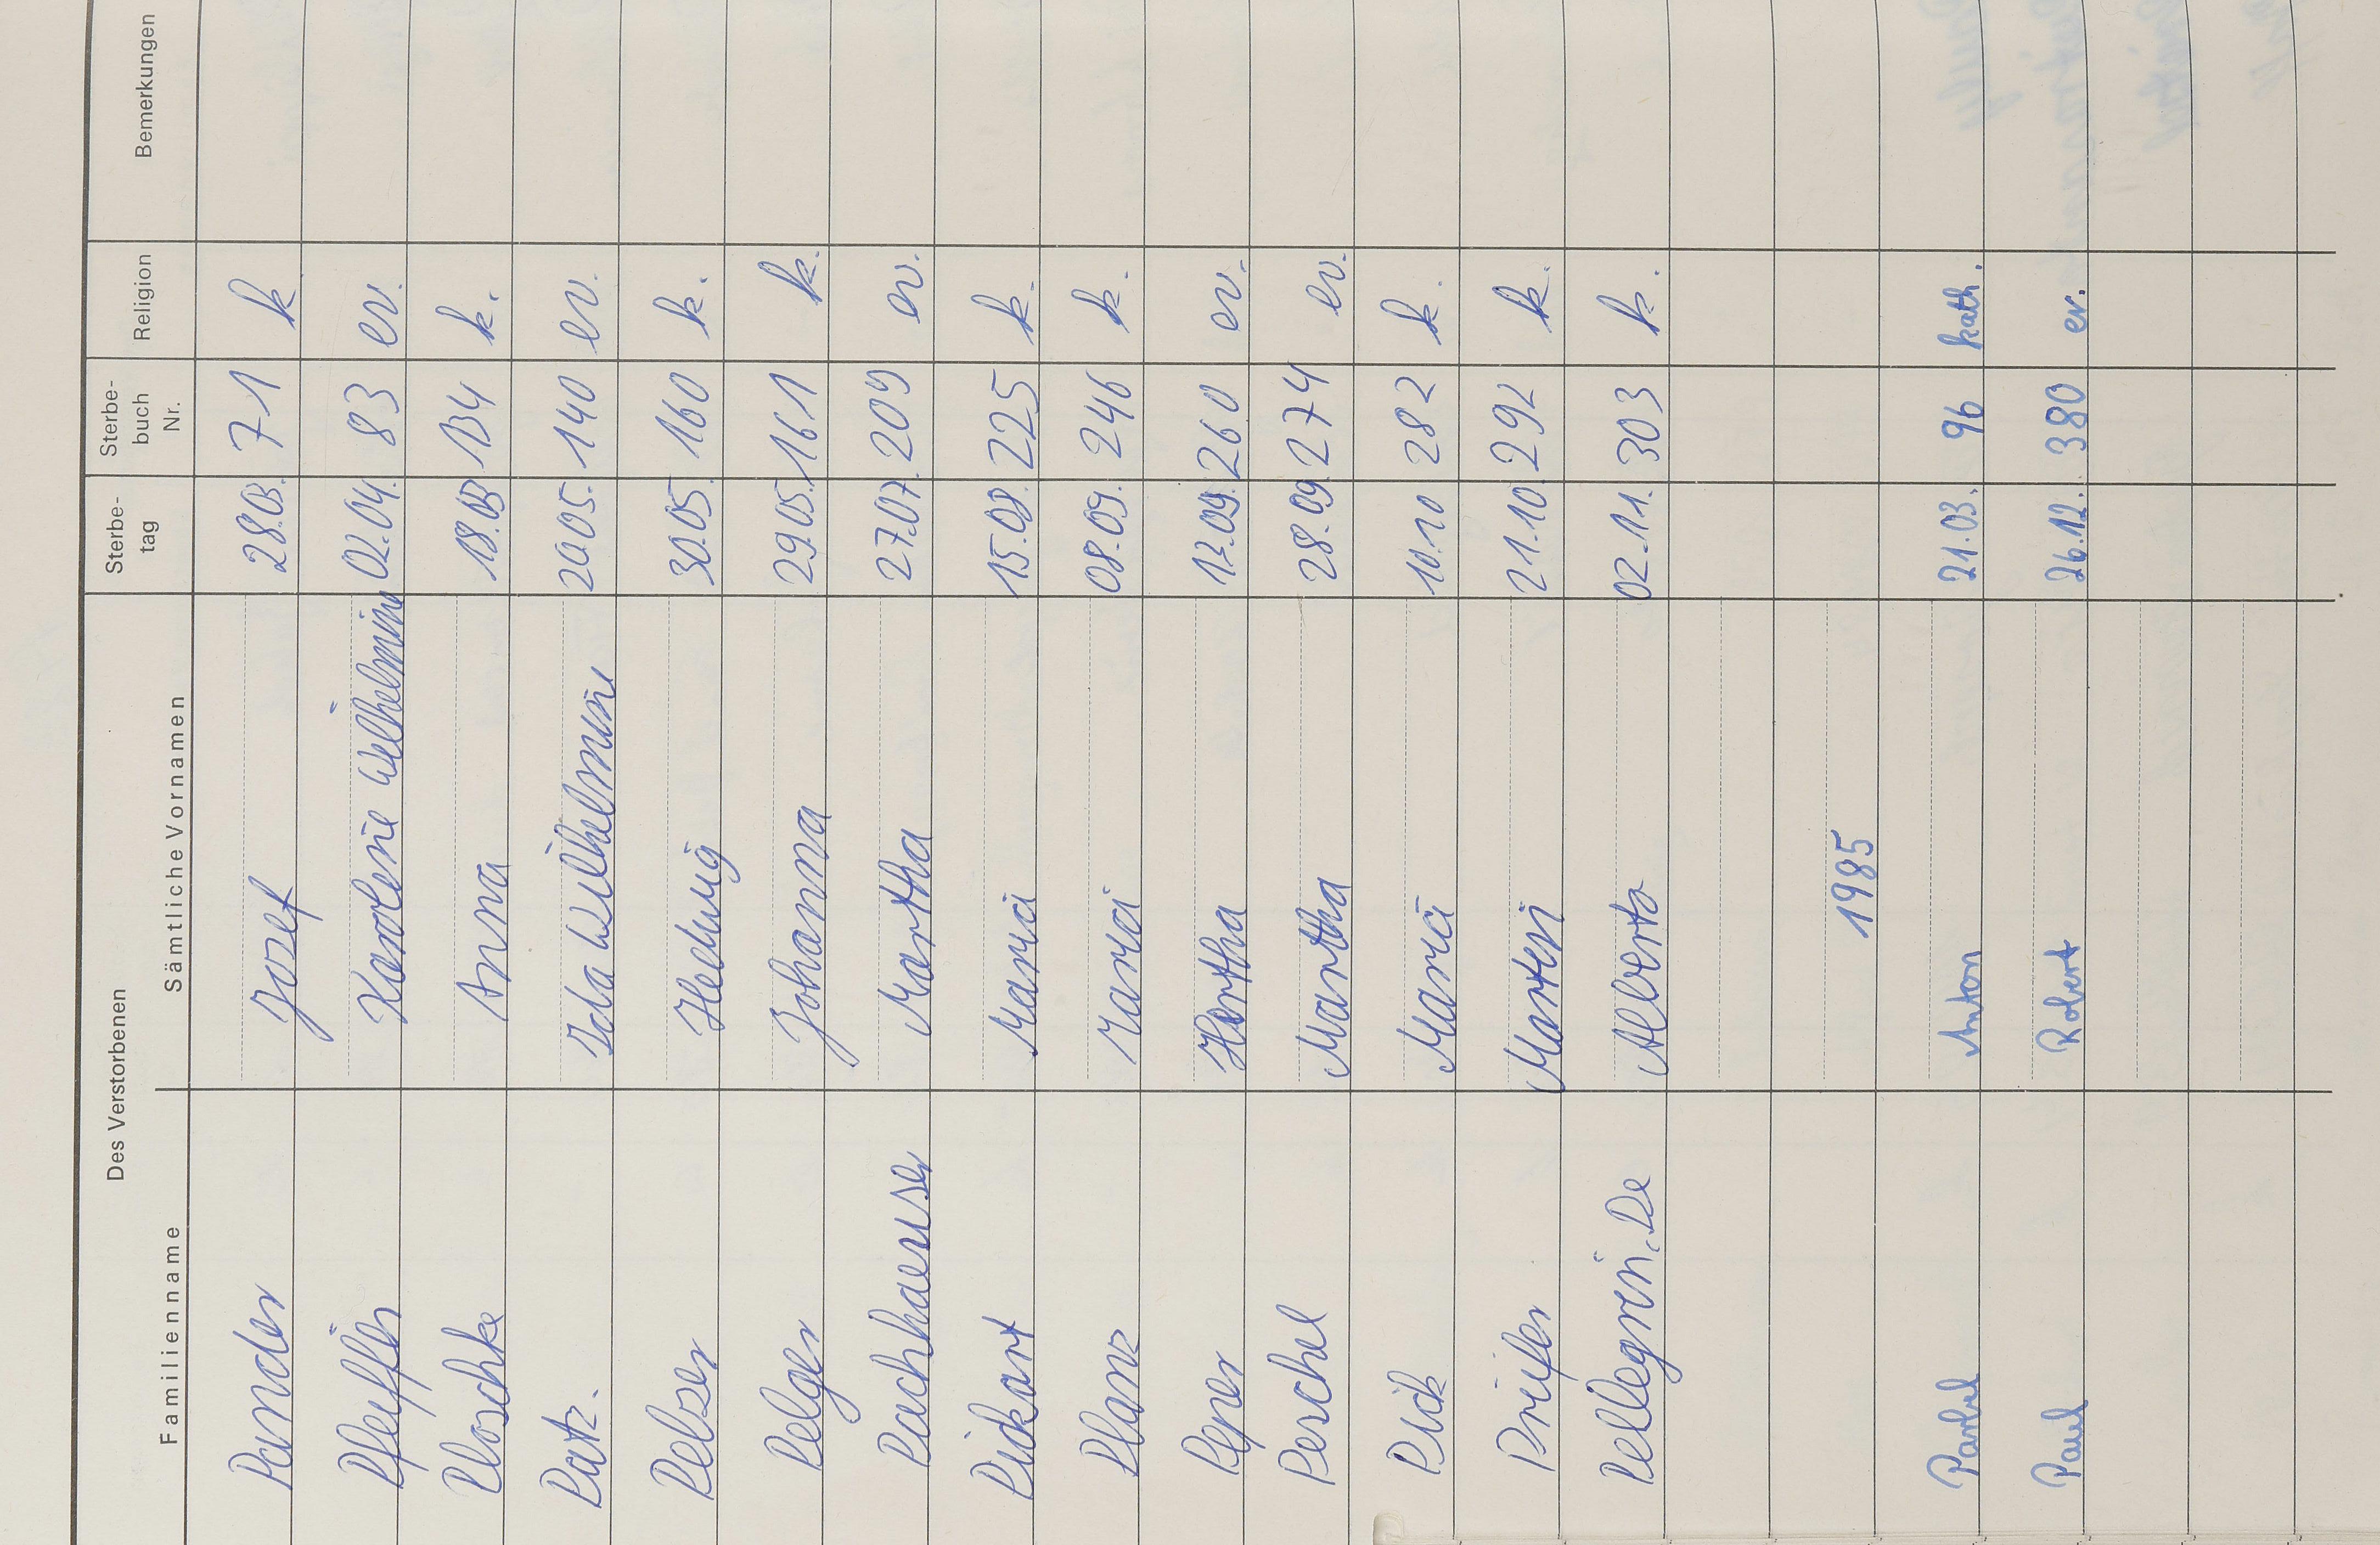 Des Verstorbenen Sterbe- Sterbe- Religion Bemerkungen
Familienname Sämtliche Vornamen tag buch
Nr.
Pander Josef 28.03. 71 k
Pfeiffer Karoline Wilhelmine 02.04. 83 ev.
Ploschke Anna 18.03 134 k.
Patz. Ida Wilhelmine 20.05. 140 ev.
Pelzer Hedwig 30.05. 160 k.
Pelger Johanna 29.05. 161 k.
Pachhaeuser Martha 27.07. 209 ev.
Pickart Maria 15.08. 225 k.
Planz Maria 08.09. 246 k.
Peper Hertha 12.09. 260 ev.
Peschel Martha 28.09. 274 ev.
Pick Maria 10.10 282 k.
Martin 21.10. 292 k.
Pellegrin, De Alberto 02.11. 303 k.
1985
Parbel Anton 21.03. 96 kath.
Paul Robert 26.12. 380 ev.